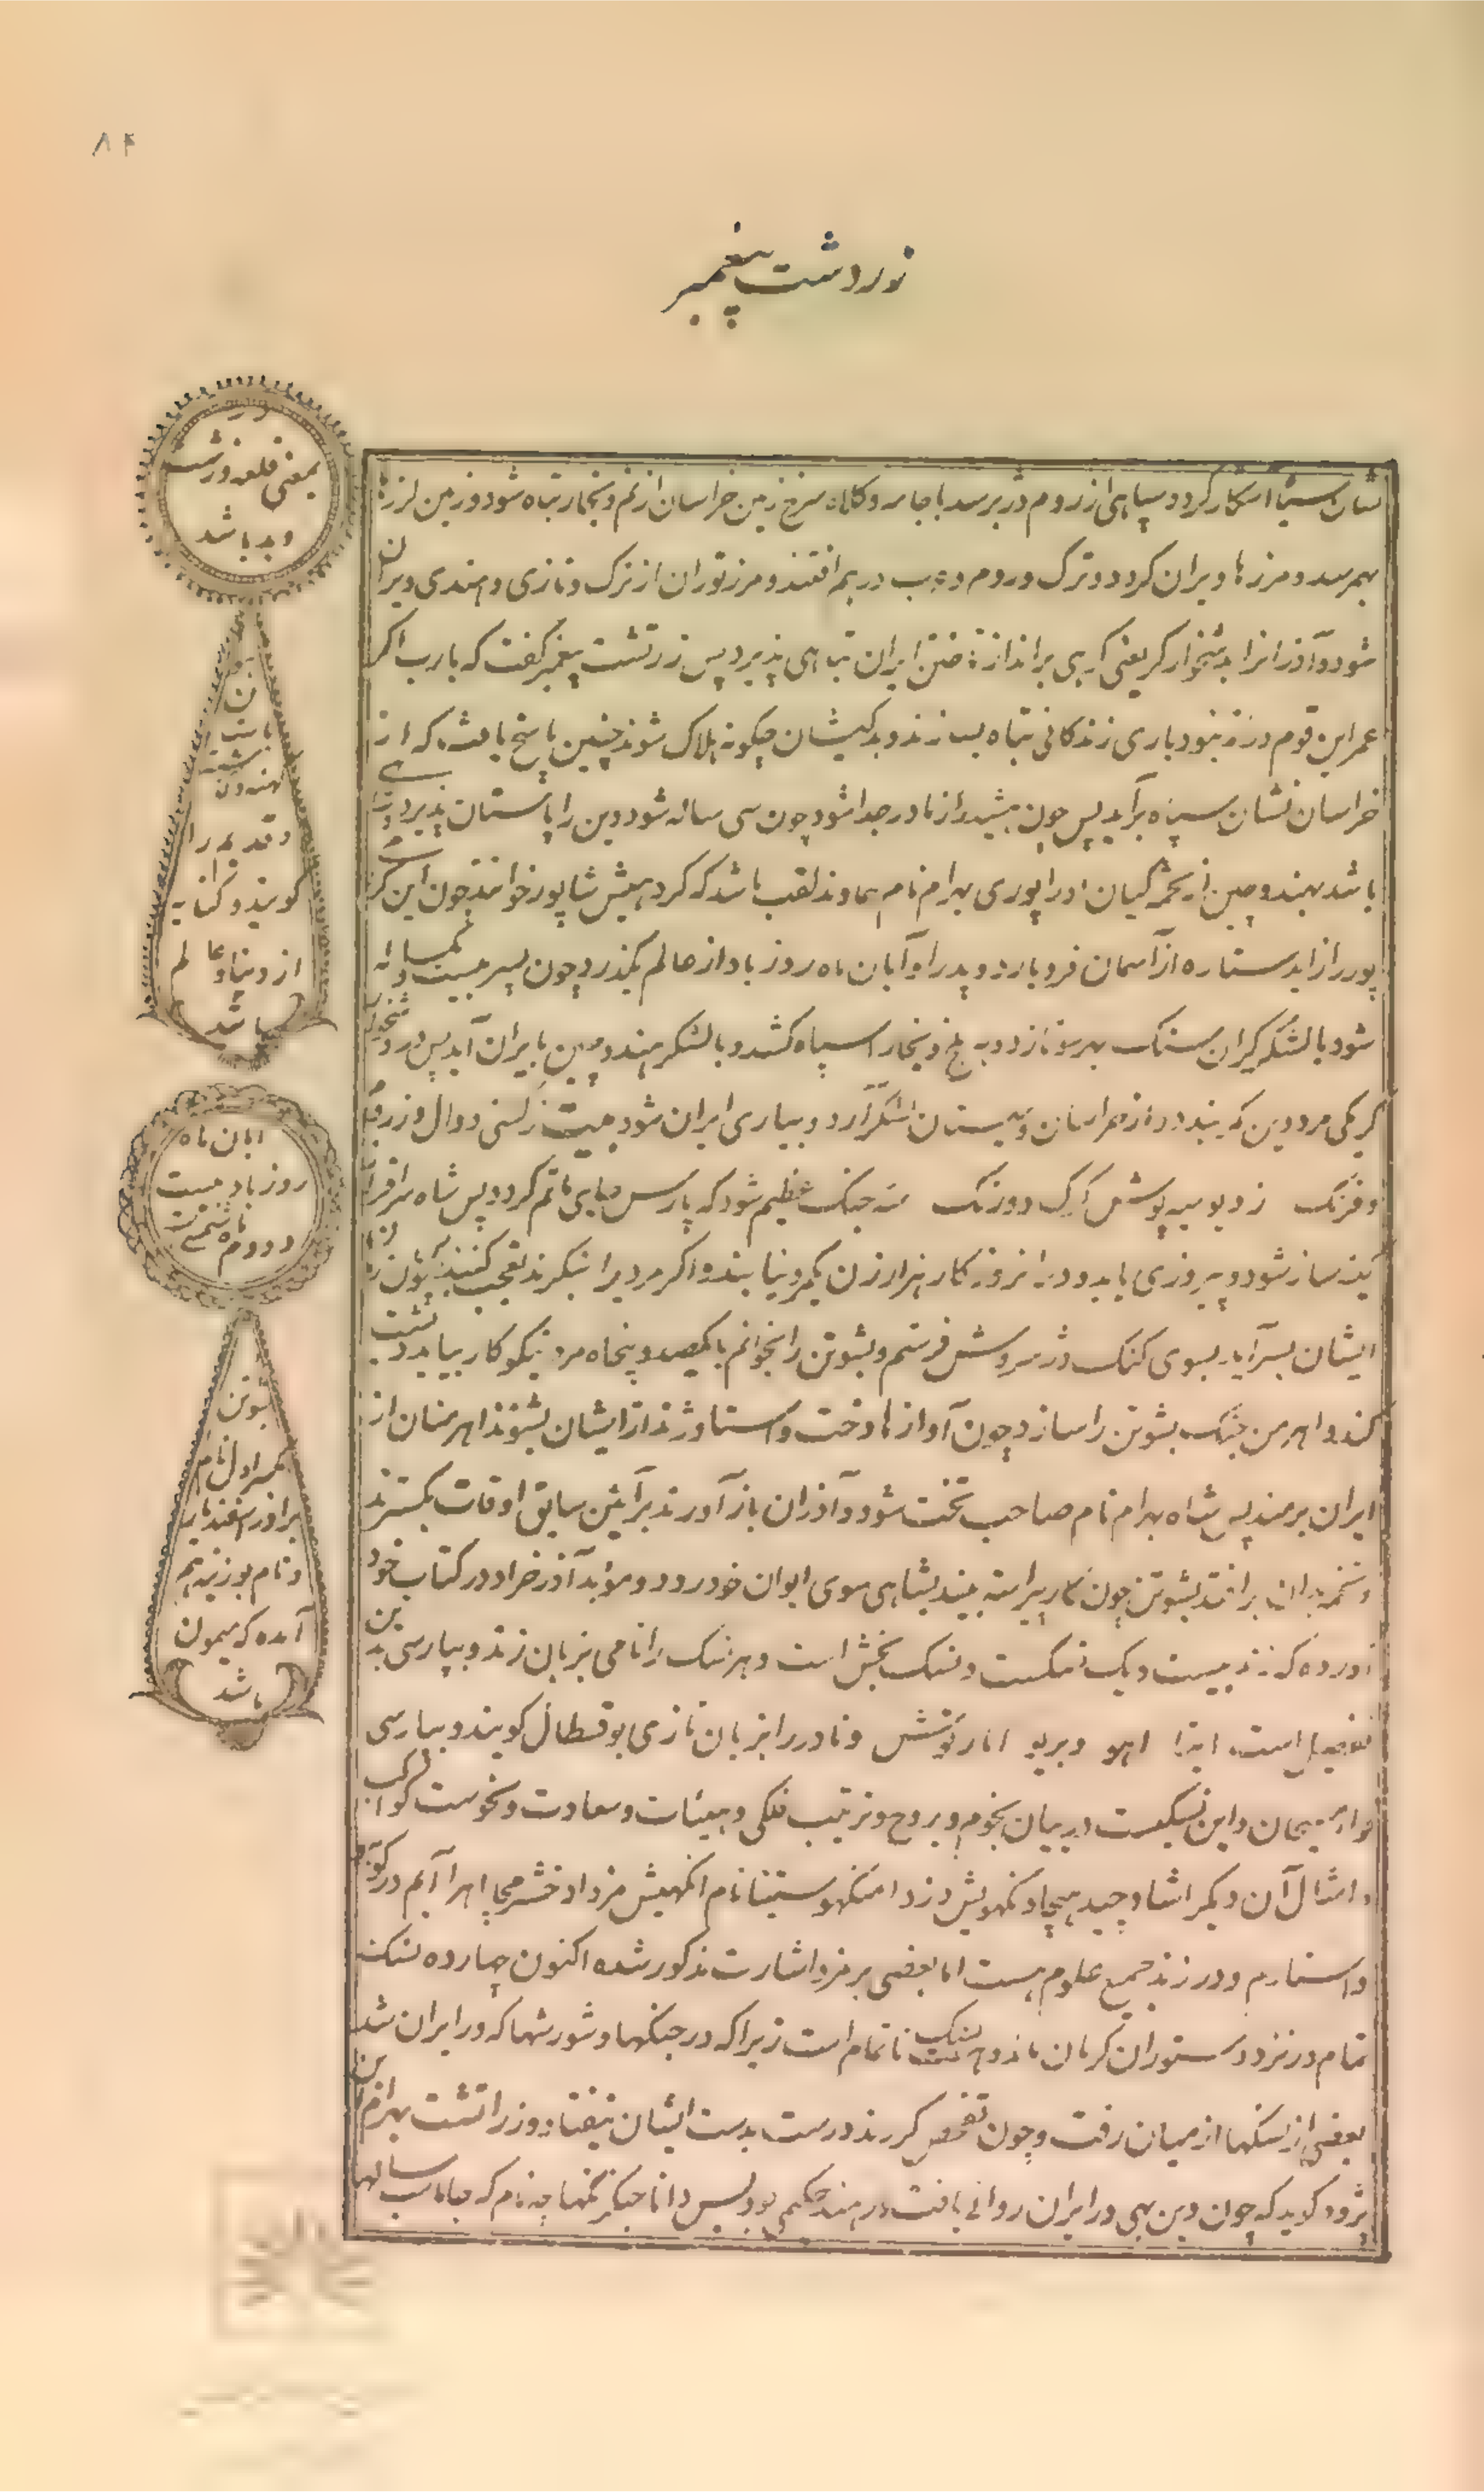 ۸۴
زوردشت پیغمبر
نشان سیاه آشکار گردد و سپاهی از روم در برسد با جامه و کلاه سرخ زمین خراسان از نم و بخار تباه شود و زمین لرزه‌ها
بهم رسد و مرزها ویران گردد و ترک و روم و عرب در هم افتند و مرز توران از ترک و تازی و هندی ویران
شود و آذران را بدشخوارگر یعنی کوهی برند از تاختن ایران تباهی پذیرد پس زرتشت پیغمبر گفت که یارب اگر
عمر این قوم دراز نبود باری زندگانی تباه بسازند و بدکیشان چگونه هلاک شوند چنین پاسخ یافت که از
خراسان نشان سیاه برآید پس چون هشیدر از مادر جدا شود چون سی ساله شود دین را پاستان پذیرد
باشد بهند و چین از تخمه کیان او را پوری بهرام نام هماوند لقب باشد که گروهیش شاپور خوانند چون این
پور زاید ستاره از آسمان فرو بارد و پدر او آبان ماه روز باد از عالم بگذرد چون پسر بیست و یکساله
شود با لشکر گران سنگ بهر سو تازد و به بلخ و بخارا سپاه کشد و با لشکر هند و چین بایران آید پس در
کوهی مرد دین که بیند دو از خراسان و سیستان لشکر آرد و بیاری ایران شود ز کشتی دوال و ز روم
و فرنگ ز دیو سیه پوش گرگ دو رنگ سه جنگ عظیم شود که پارس جای ماتم گردد پس شاه سرافراز
کینه ساز شود و پیروزی یابد و در آن روزگار هزار زن یکمرد نیابند و اگر مردی را بنگرند تعجب کنند چون زمان
ایشان بسر آید بسوی کنگ دژ سروش فرستم و بشوتن را بخوانم با یکصد و پنجاه مرد نیکوکار بیاید و یشت
کند و اهرمن جنگ بشوتن را سازد چون آواز هادخت و استا و ژند از ایشان بشنوند اهرمنان از
ایران برمند پس شاه بهرام نام صاحب تخت شود و آذران باز آورند بر آئین سابق اوقات بگسترند
و تخمه بدان برافتد بشوتن چون کار پیراسته بیند بشاهی سوی ایوان خود رود و موبد آذر خراد در کتاب خود
آورده که زند بیست و یک نسکست و نسک بخش است و هر نسک را نامی بزبان زند و بپارسی بدین
تفصیل است. ایتا اهو ویریو اتارتوش و نادر را بزبان تازی بو قسطال گویند و بپارسی
این نسکست در بیان نجوم و بروج و ترتیب فلکی و هیئات و سعادت و نحوست کواکب
و امثال آن دیگر اشاد چید هچا ونگهویش دزدا منگهو ستینا نام انگهیش مزدا خشرمچا اهرا آئیم در گوبیو
واستارم و در زند جمیع علوم هست اما بعضی بر مز و اشارت مذکور شده اکنون چهارده نسک
تمام در نزد دستوران کرمان ماند و هفت نسک ناتمام است زیرا که در جنگها و شورشها که در ایران شد
بعضی از نسکها از میان رفت و چون تفحص کردند درست بدست ایشان نیفتاد و زراتشت بهرام بن
پژدو گوید که چون دین بهی در ایران روائی یافت در هند حکیمی بود بس دانا جنگرنگهاچه نام که جاماسب سالها
دژ
بمعنی قلعه و زشت
و بد باشد
گویند و کنایه
از دنیا و عالم
باشد
ابان ماه
روز باد بیست
و دوم ماه شمسی است
بشوتن
بکسر اول نام
برادر اسفندیار
و نام بوزینه هم
آمده که میمون
باشد